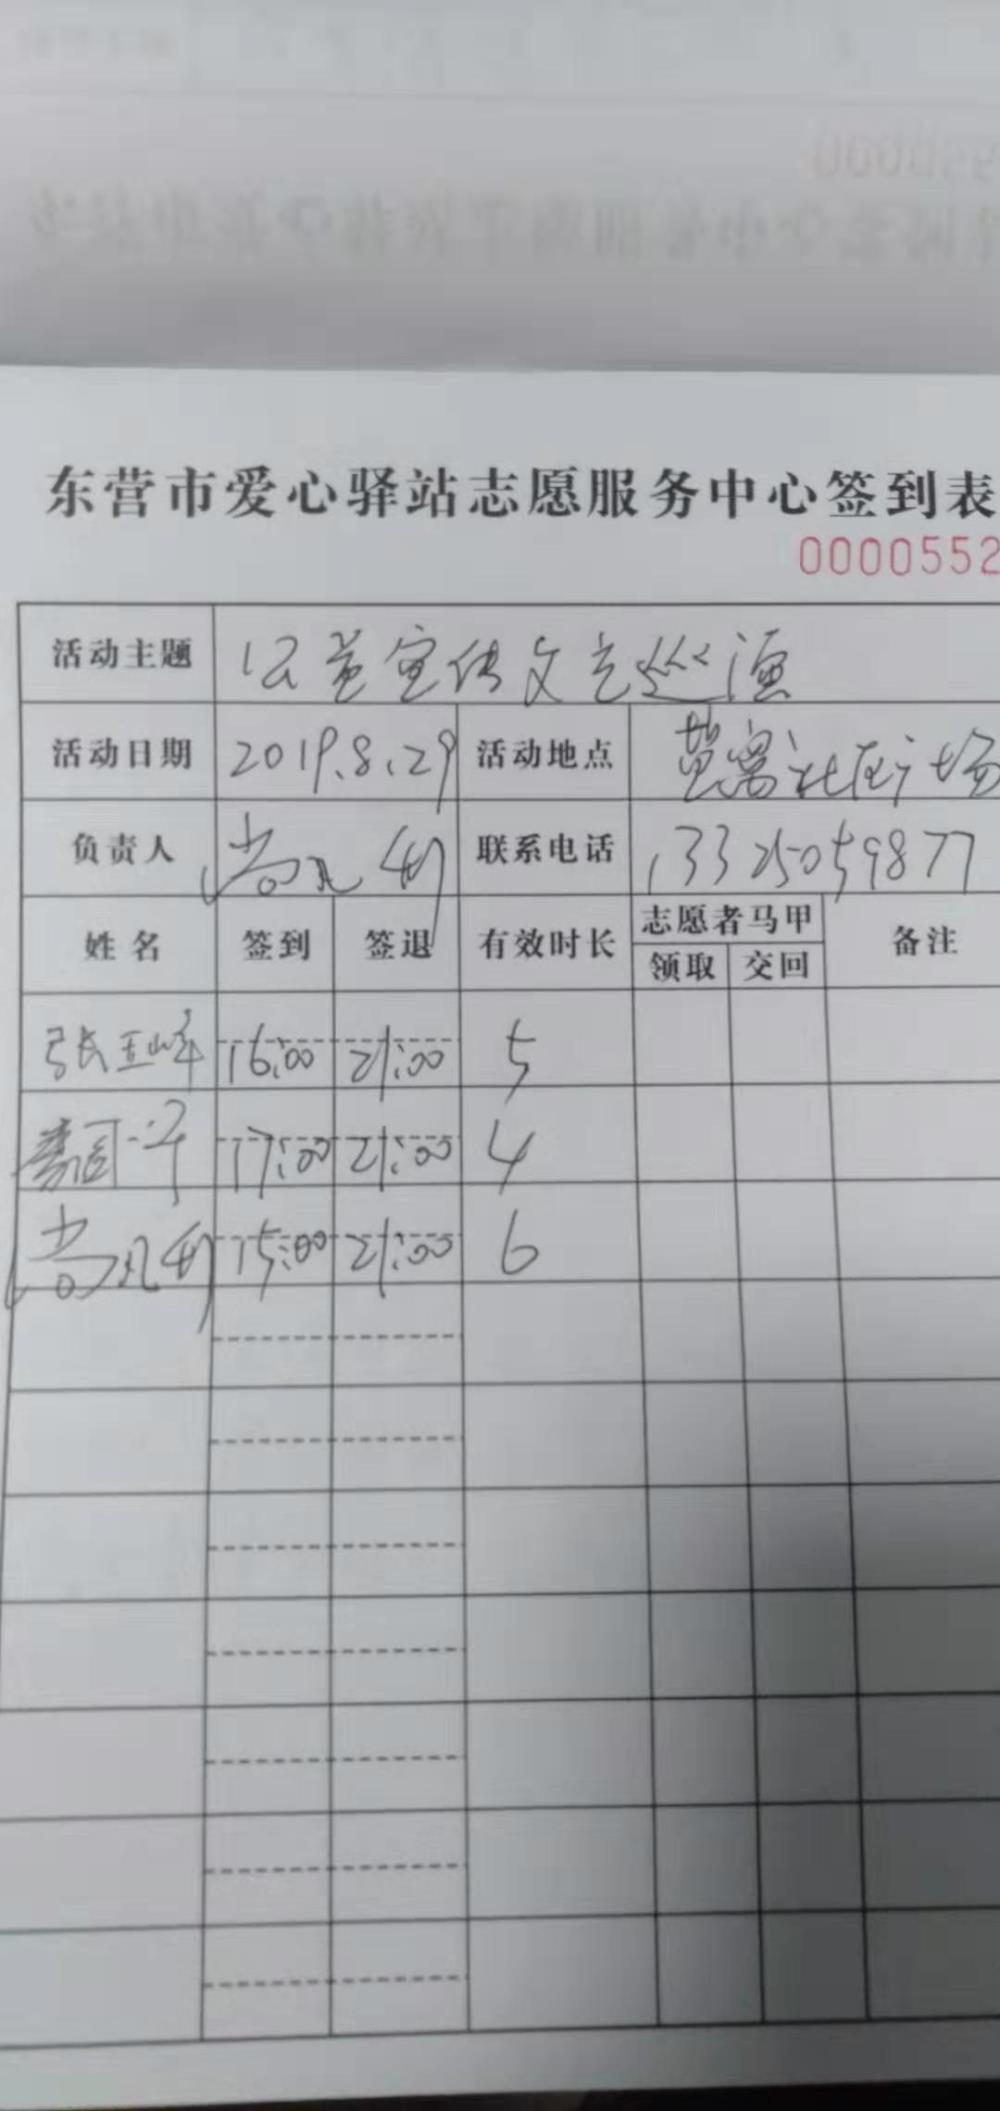 东营市爱心驿站志愿服务中心签到表
0000552
活动主题 公益宣传文艺巡演
活动日期 2019.8.29 活动地点 黄窝社区广场
负责人 尚凡利 联系电话 13325059877
姓名 签到 签退 有效时长 志愿者马甲 备注
领取 交回
张玉峰 16:00 21:00 5
17:00 21:00 4
尚凡利 15:00 21:00 6